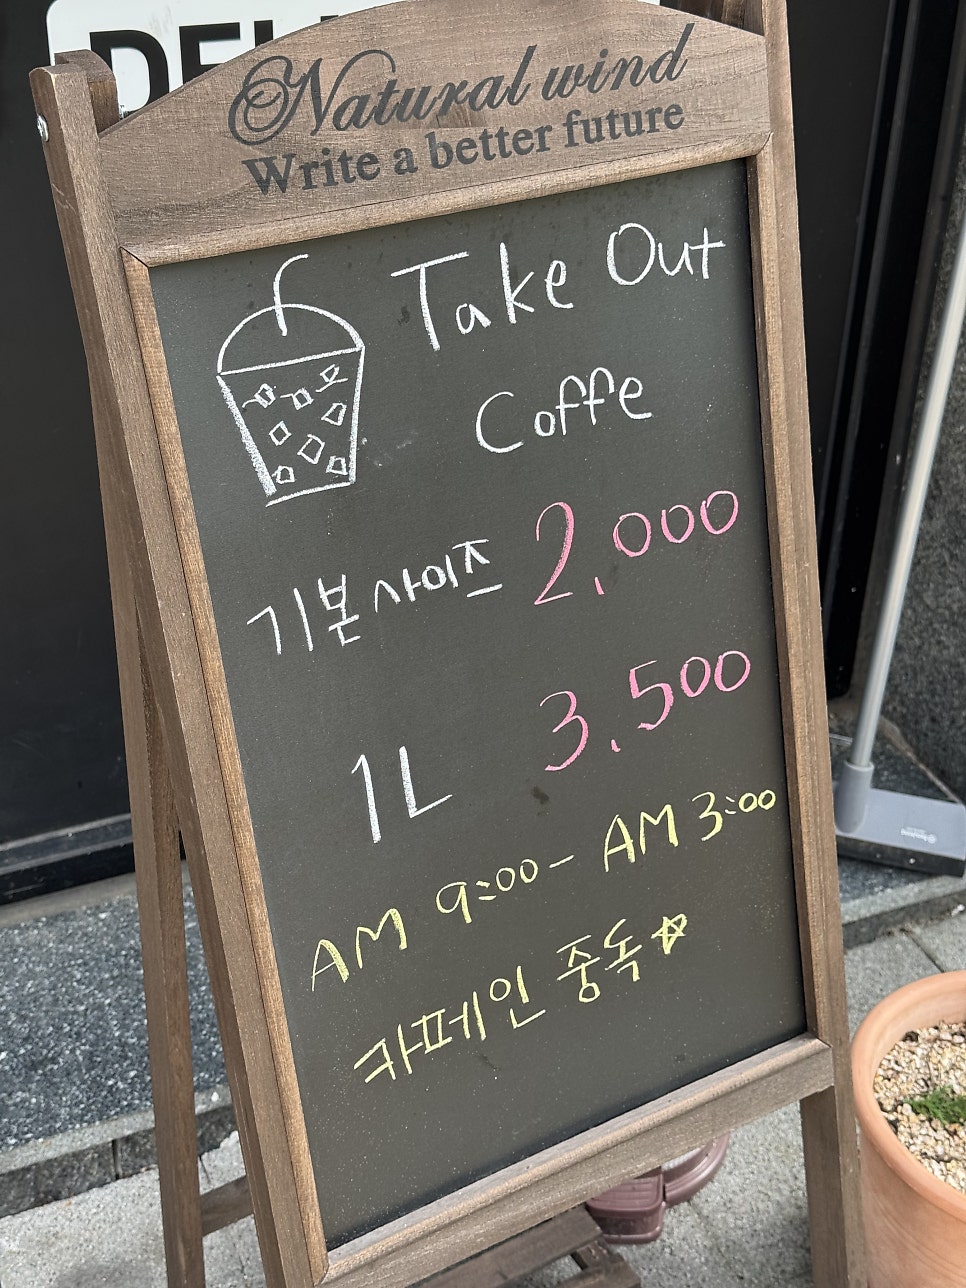 Natural wind
Write a better future
Take Out
Coffe
기본사이즈 2,000
1L 3,500
AM 9:00 - AM 3:00
카페인 중독☆